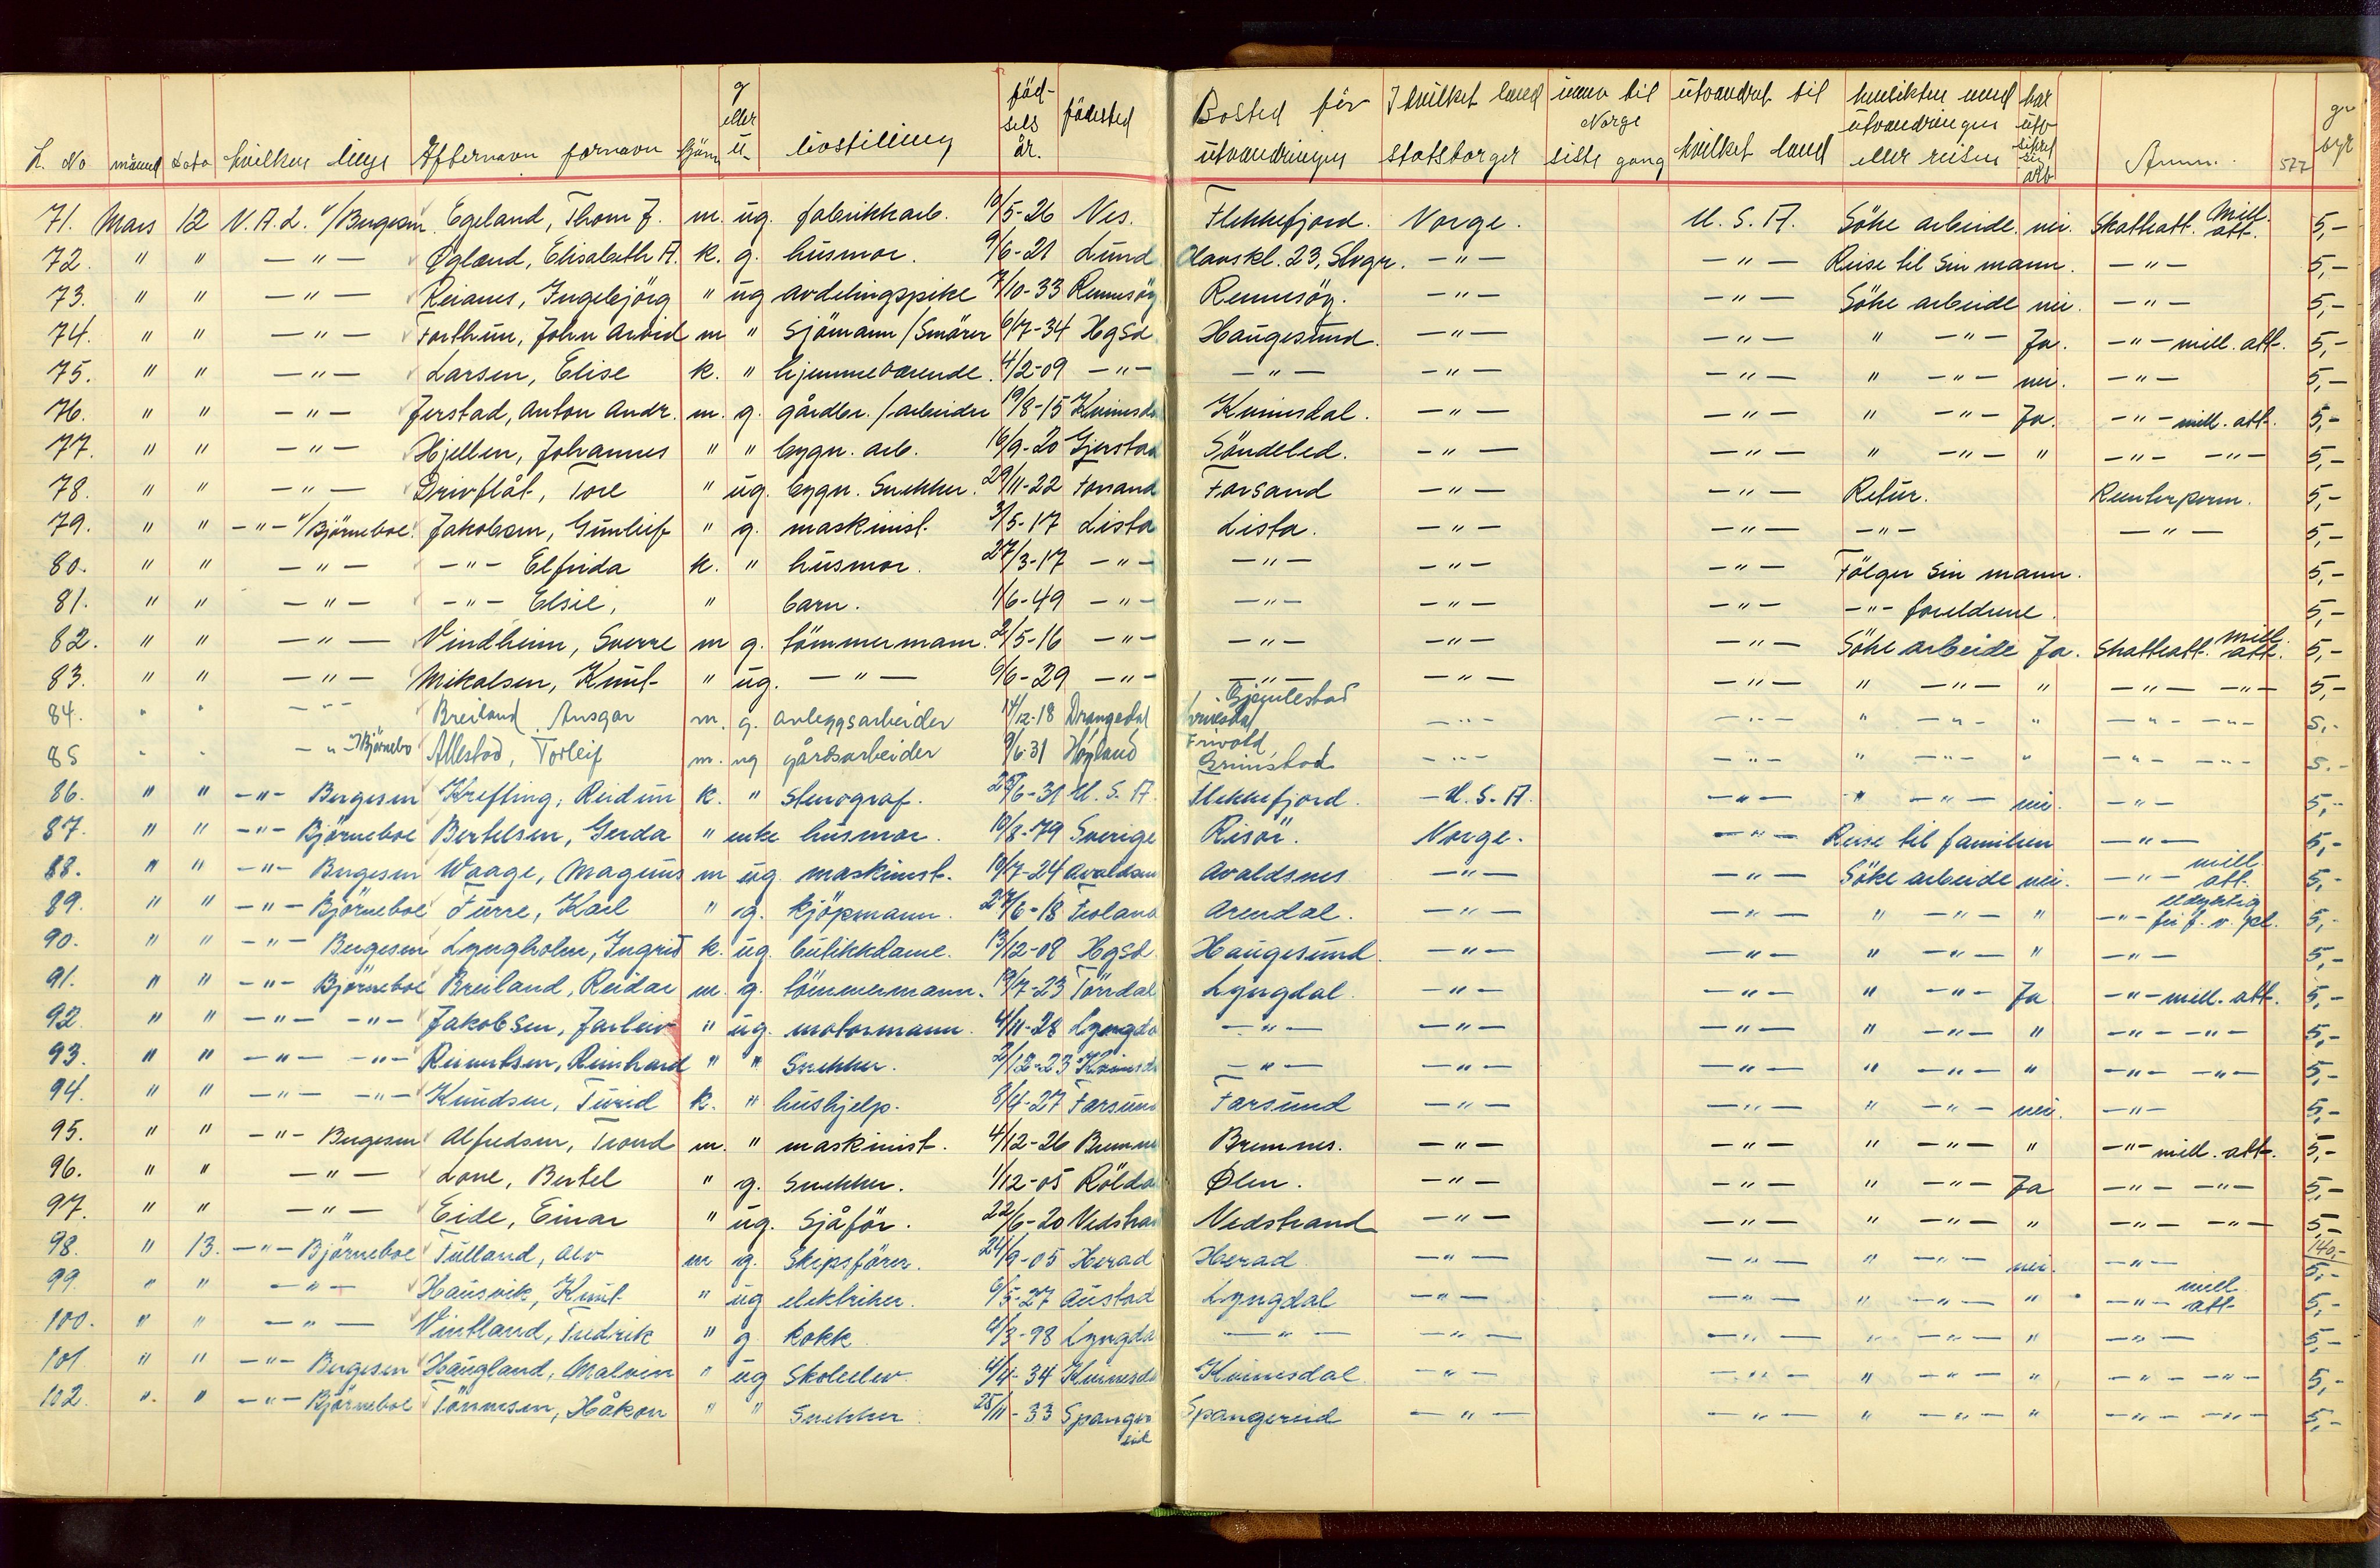 L. No månned dato hvilken linje Efternavn fornavn kjønn g eller u- livsstilling fød-sels år. fødested Bosted før utvandringen I hvilket land statsborger innv til Norge siste gang utvandret til hvilket land hensikten med utvandringen eller reisen har utv sikret sig arb Anm. 577 ge byr
71. Mars 12 N.A.L. v/Bergesen Egeland, Thom J. m. ug. fabrikkarb. 10/5-26 Nes. Flekkefjord. Norge. U.S.A. Söke arbeide. nei. Skatteatt. mill. att. 5,-
72. " " -"- Øgland, Elisabeth A. k. g. husmor. 9/6-21 Lund Olavskl. 23, Stvgr. -"- -"- Reise til sin mann. -"- 5,-
73. " " -"- Reianes, Ingebjörg " ug avdelingspike 7/10-33 Rennesöy Rennesöy. -"- -"- Söke arbeide nei. -"- 5,-
74. " " -"- Forthun, John Arvid m " Sjömann/Smörer 6/7-34 Hgsd Haugesund. -"- -"- " -"- Ja. -"- mill. att. 5,-
75. " " -"- Larsen, Elise k. " hjemmeværende. 4/2-09 -"- -"- -"- -"- " -"- nei. -"- 5,-
76. " " -"- Jerstad, Anton Andr. m. g. gårdbr./arbeider 19/8-15 Kvinesda Kvinesdal. -"- -"- " -"- Ja. -"- mill. att. 5,-
77. " " -"- Hjellen, Johannes " " bygn. arb. 16/9-20 Gjerstad Söndeled. -"- -"- " -"- " -"- -"- 5,-
78. " " -"- Drivflåt, Tore " ug. bygn. Snekker. 29/11-22 Forsand Forsand -"- -"- Retur. Reenterperm. 5,-
79. " " -"- v/Björneboe. Jakobsen, Gunleif " g. maskinist. 3/5-17 Lista Lista. -"- -"- -"- -"- 5,-
80. " " -"- -"- Elfrida k. " husmor. 27/3-17 -"- -"- -"- -"- Fölger sin mann. 5,-
81. " " -"- -"- Elsie, " barn. 1/6-49 -"- -"- -"- -"- -"- foreldrene. 5,-
82. " " -"- Vindheim, Sverre m g. tömmermann. 2/5-16 -"- -"- -"- -"- Söke arbeide Ja. Skatteatt. mill. att. 5,-
83. " " -"- Mikalsen, Knut " ug. -"- 6/6-29 -"- -"- -"- -"- " -"- " -"- -"- 5,-
84. " " -"- Breiland Ansgar m. g. anleggsarbeider 14/12-18 Drangedal -"- -"- " -"- " -"- -"- 5,-
85 " " -"- v/Björnebo Allestad, Torleif m. ug gårdsarbeider 9/6-31 Høyland Frivold Grimstad -"- -"- " -"- " -"- -"- 5,-
86. " " -"- Bergesen Krefting, Reidun k. " Stenograf. 25/6-31 U.S.A. Flekkefjord. -U.S.A. -"- " -"- nei. -"- 5,-
87. " " -"- Björneboe Bertelsen, Gerda " enke husmor. 10/8-79 Sverige Risör. Norge. -"- Reise til familien -"- 5,-
88. " " -"- Bergesen Waage, Magnus m ug. maskinist. 10/7-24 Avaldsn Avaldsnes -"- -"- Söke arbeide nei. -"- mill. att. 5,-
89. " " -"- Björneboe Furre, Karl " g. kjöpmann. 27/6-18 Froland Arendal. -"- -"- " -"- " -"- udyktig for f. v. pl. 5,-
90. " " -"- Bergesen Lyngholm, Ingrid k. ug. butikkdame. 13/12-08 Hgsd Haugesund. -"- -"- " -"- " -"- 5,-
91. " " -"- Björneboe Breiland, Reidar m. g. tömmermann. 19/7-23 Törrdal Lyngdal. -"- -"- " -"- Ja -"- mill. att. 5,-
92. " " -"- -"- Jakobsen, Jarleiv " ug. motormann. 4/11-28 Lyngda -"- -"- -"- " -"- " -"- -"- 5,-
93. " " -"- -"- Reinertsen, Reinhard " " Snekker. 2/12-23 Kvinesd -"- -"- -"- " -"- " -"- -"- 5,-
94. " " -"- -"- Knudsen, Turid k. " hushjelp. 8/4-27 Farsund Farsund -"- -"- " -"- nei. -"- 5,-
95. " " -"- Bergesen Alfredsen, Trond m. " maskinist. 4/12-26 Bremne Bremnes. -"- -"- " -"- " -"- mill. att. 5,-
96. " " -"- Lone, Bertel " g. Snekker. 1/12-05 Rölda Ølen. -"- -"- " -"- Ja -"- -"- 5,-
97. " " -"- Eide, Einar " ug. Sjåför. 22/6-20 Nedstran Nedstrand -"- -"- " -"- " -"- -"- 5,-
140,-
98. " 13. -"- Björneboe Tulland, Alv m g. Skipsförer. 24/9-05 Herad Herad -"- -"- " -"- nei. -"- 5,-
99. " " -"- Hausvik, Knut " ug elektriker. 6/5-27 Austad Lyngdal -"- -"- " -"- " -"- mill. att 5,-
100. " " -"- Vintland, Fredrik " g. kokk 4/3-98 Lyngda -"- -"- -"- " -"- " -"- 5,-
101 " " -"- Bergesen Haugland, Malvin " ug Skoleelev 4/4-34 Kvinesda Kvinesdal -"- -"- " -"- " -"- -"- 5,-
102. " " -"- Björneboe Tönnesen, Håkon " " Snekker 25/11-33 Spangereid Spangereid -"- -"- " -"- " -"- -"- 5,-